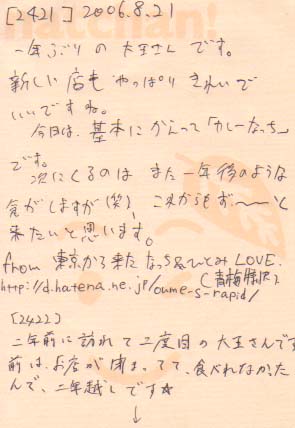 hatchan!
[2421] 2006.8.21
一年ぶりの大王さんです。
新しい店もやっぱりきれいで
いいですね。
今日は、基本にかえって「カレーなっち」
です。
次にくるのはまた一年後のような
気がしますが(笑)、これからもず〜〜っと
来たいと思います。
from 東京から来たなっち&ひとみ LOVE.
(青梅特快)
http://d.hatena.ne.jp/oume-s-rapid/
[2422]
二年前に訪れて二度目の大王さんです
前はお店が閉まってて、食べれなかった
んで、二年越しです☆
↓